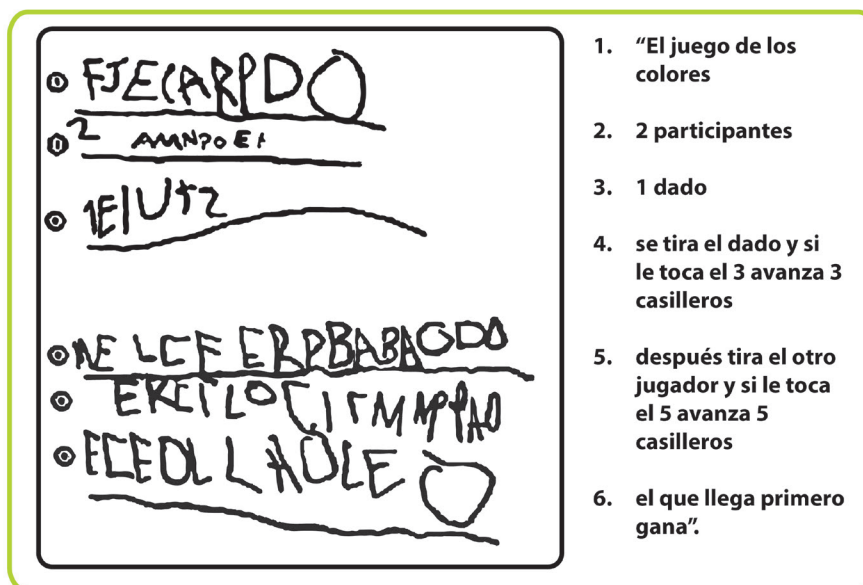 FJECARPDO
2 AMNPOEI
1E|U+2
NE LCE ERPBABAGDO
EKCILOCIIMMPPAO
ECEOLLAOLEO
1. “El juego de los
colores
2. 2 participantes
3. 1 dado
4. se tira el dado y si
le toca el 3 avanza 3
casilleros
5. después tira el otro
jugador y si le toca
el 5 avanza 5
casilleros
6. el que llega primero
gana”.